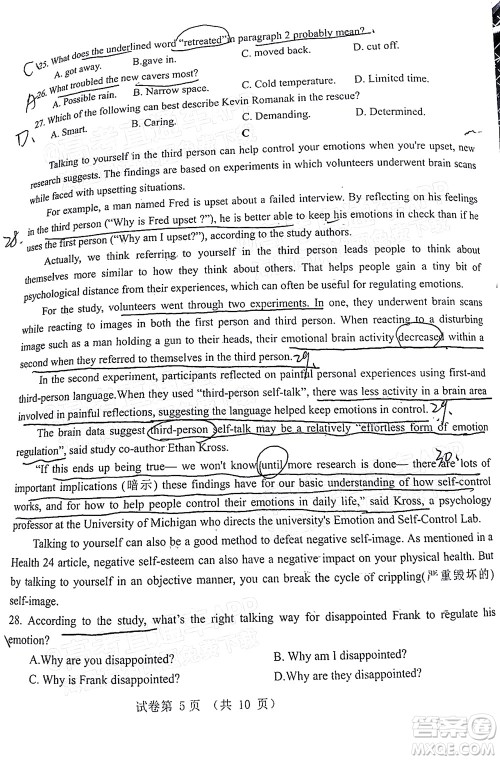 C 25. What does the underlined word "retreated" in paragraph 2 probably mean?
A. got away. B.gave in. C. moved back. D. cut off.
A 26. What troubled the new cavers most?
A. Possible rain. B. Narrow space. C. Cold temperature. D. Limited time.
D. 27. Which of the following can best describe Kevin Romanak in the rescue?
A. Smart. B. Caring. C. Demanding. D. Determined.
C
Talking to yourself in the third person can help control your emotions when you're upset, new
research suggests. The findings are based on experiments in which volunteers underwent brain scans
while faced with upsetting situations.
For example, a man named Fred is upset about a failed interview. By reflecting on his feelings
in the third person ("Why is Fred upset ?"), he is better able to keep his emotions in check than if he
28. uses the first person ("Why am I upset?"), according to the study authors.
Actually, we think referring to yourself in the third person leads people to think about
themselves more similar to how they think about others. That helps people gain a tiny bit of
psychological distance from their experiences, which can often be useful for regulating emotions.
For the study, volunteers went through two experiments. In one, they underwent brain scans
while reacting to images in both the first person and third person. When reacting to a disturbing
image such as a man holding a gun to their heads, their emotional brain activity decreased within a
second when they referred to themselves in the third person. 29.
In the second experiment, participants reflected on painful personal experiences using first-and
third-person language.When they used "third-person self-talk", there was less activity in a brain area
involved in painful reflections, suggesting the language helped keep emotions in control. 29.
The brain data suggest third-person self-talk may be a relatively "effortless form of emotion
regulation", said study coauthor Ethan Kross. 30.
"If this ends up being true— we won't know until more research is done— there are lots of
important implications (暗示) these findings have for our basic understanding of how self-control
works, and for how to help people control their emotions in daily life," said Kross, a psychology
professor at the University of Michigan who directs the university's Emotion and Self-Control Lab.
Talking to yourself can also be a good method to defeat negative self-image. As mentioned in a
Health 24 article, negative self-esteem can also have a negative impact on your physical health. But
by talking to yourself in an objective manner, you can break the cycle of crippling(严重毁坏的)
self-image.
28. According to the study, what's the right talking way for disappointed Frank to regulate his
emotion?
A.Why are you disappointed? B. Why am I disappointed?
C. Why is Frank disappointed? D.Why are they disappointed?
试卷第 5 页 （共 10 页）
答案圈